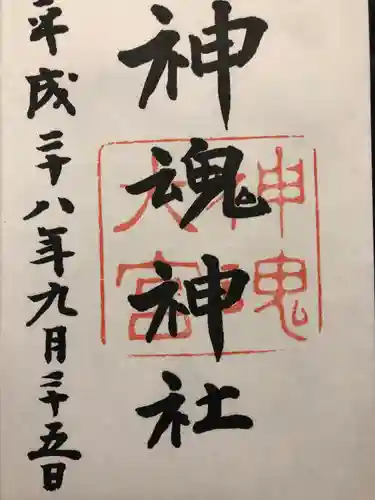 神魂神社
平成二十八年九月二十五日
神魂神
大宮